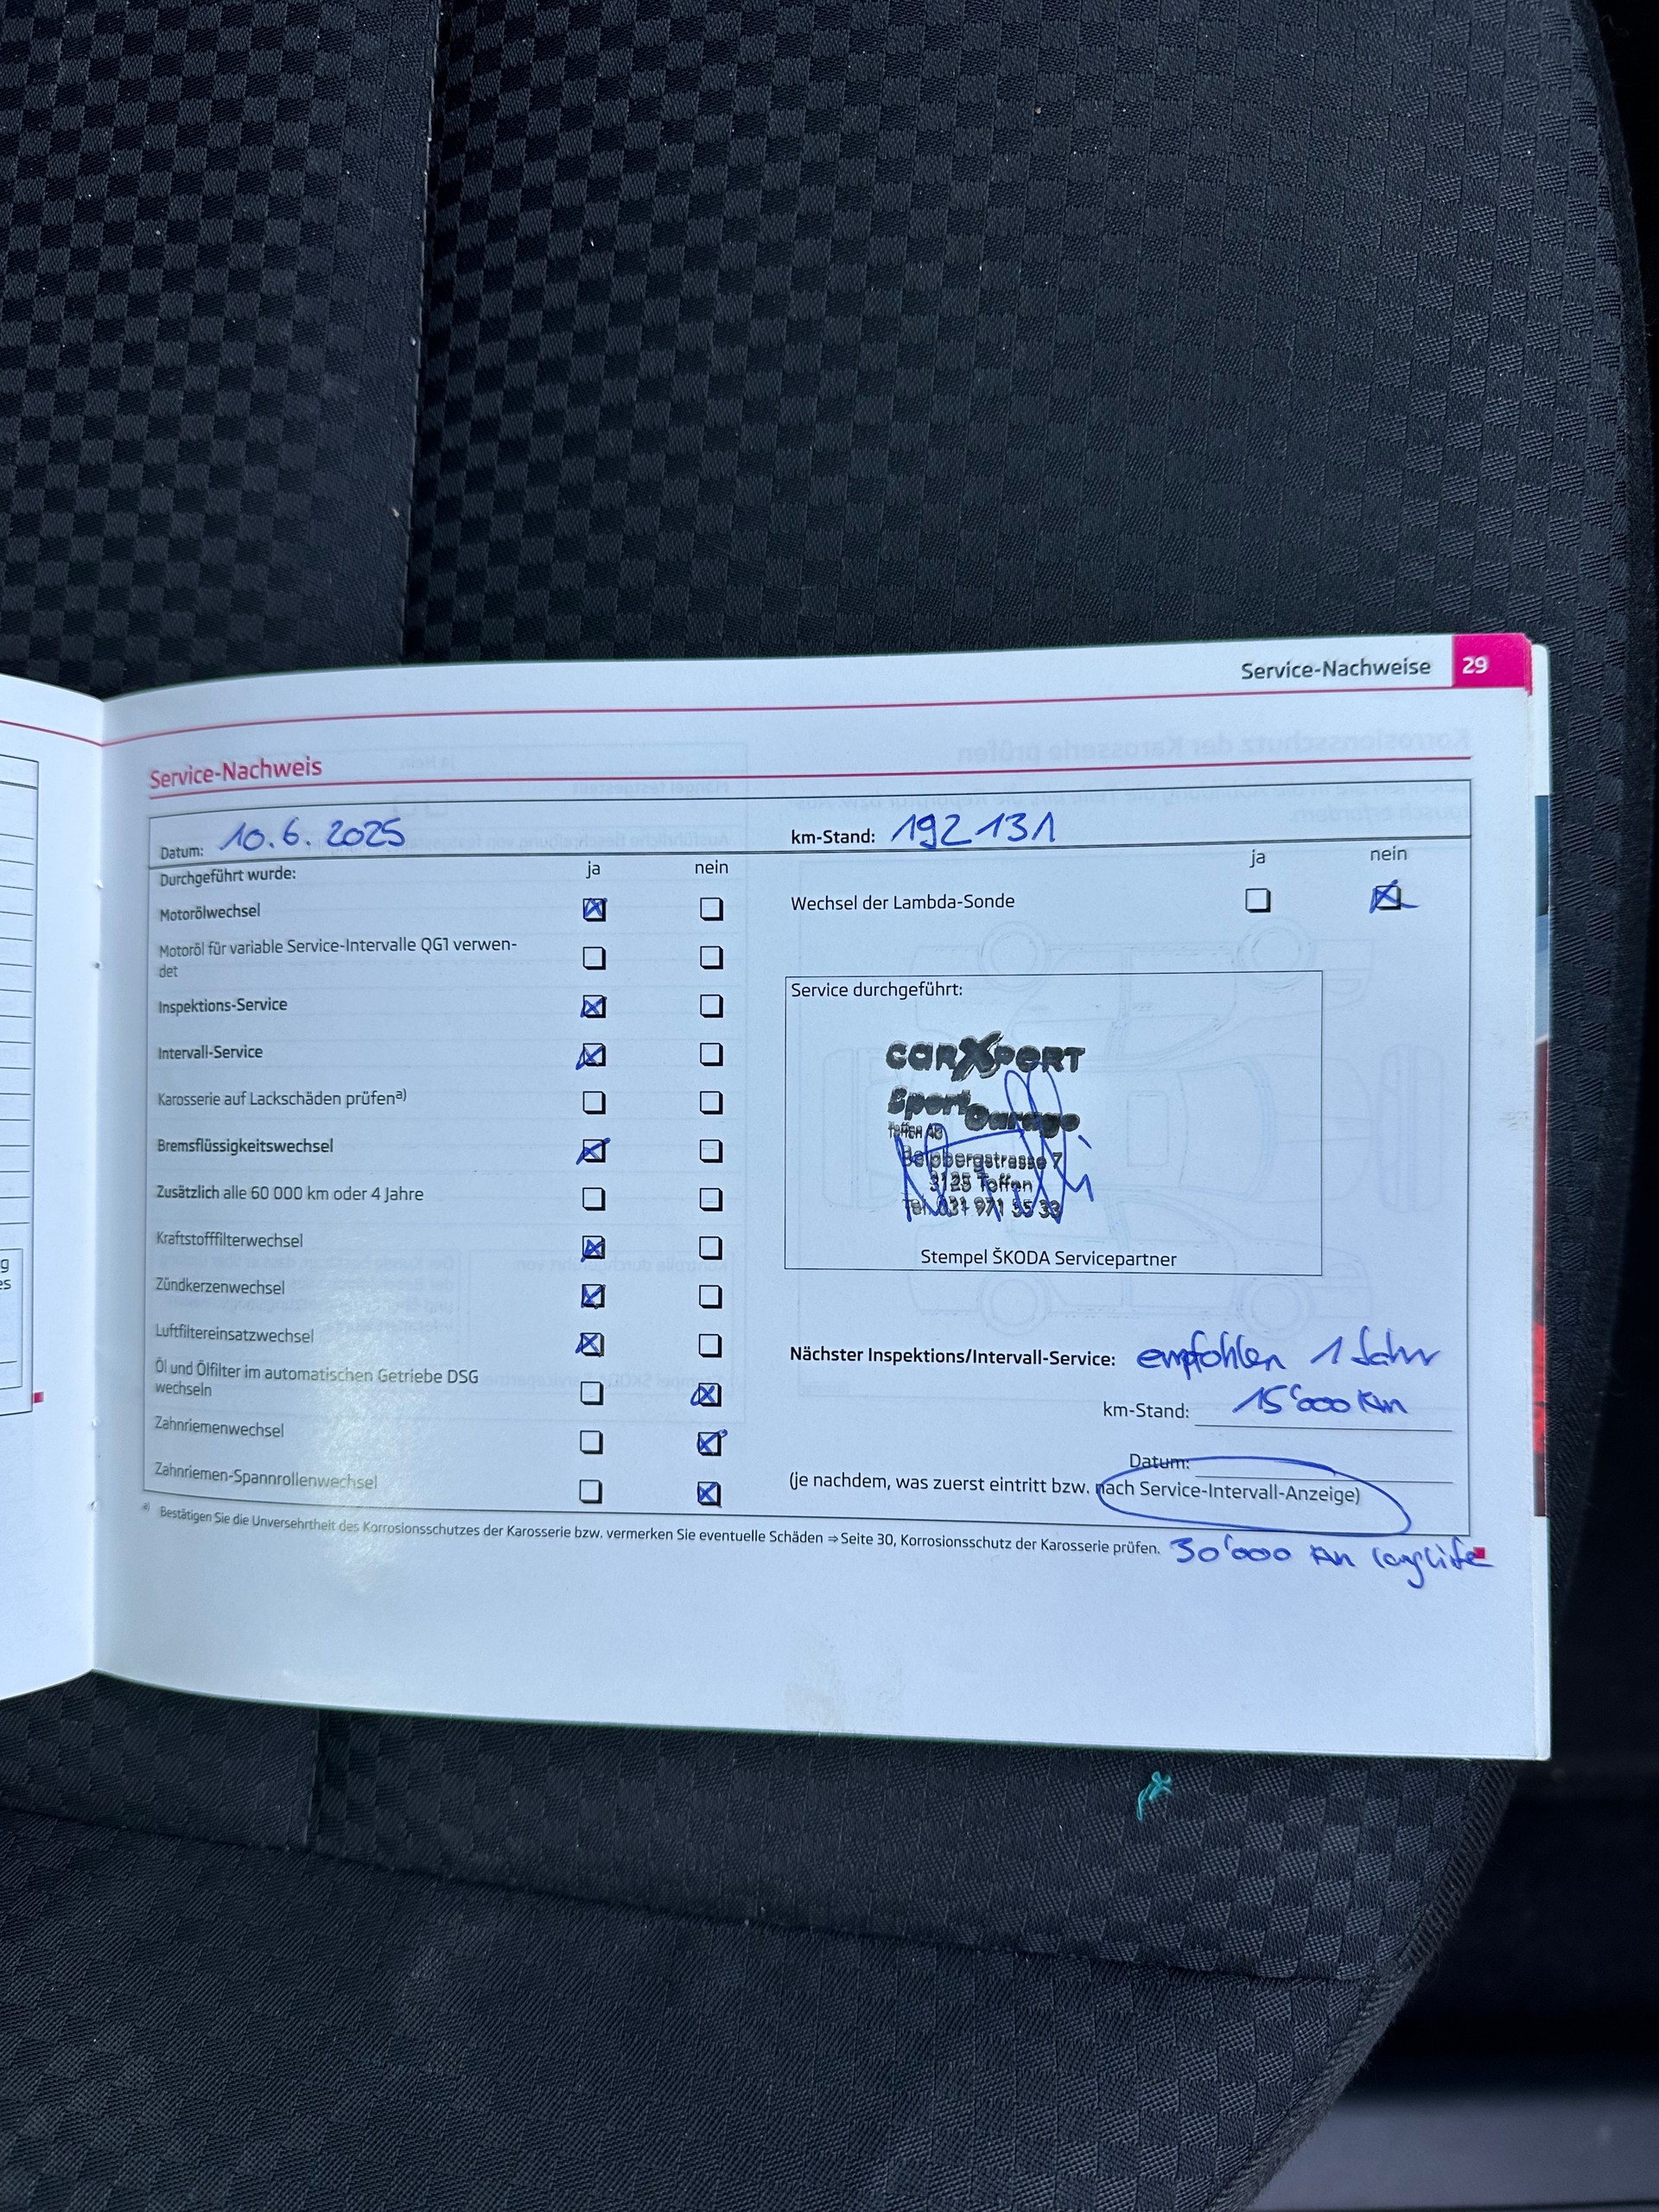 Service-Nachweise 29
Service-Nachweis
Datum: 10.6.2025
km-Stand: 192131
Durchgeführt wurde: ja nein
Motorölwechsel
Motoröl für variable Service-Intervalle QG1 verwen-
det
Inspektions-Service
Intervall-Service
Karosserie auf Lackschäden prüfena)
Bremsflüssigkeitswechsel
Zusätzlich alle 60 000 km oder 4 Jahre
Kraftstofffilterwechsel
Zündkerzenwechsel
Luftfiltereinsatzwechsel
Öl und Ölfilter im automatischen Getriebe DSG
wechseln
Zahnriemenwechsel
Zahnriemen-Spannrollenwechsel
ja nein
Wechsel der Lambda-Sonde
Service durchgeführt:
carXport
Sport Garage
Toffen AG
Belpbergstrasse 7
3125 Toffen
Tel. 031 971 55 33
Stempel ŠKODA Servicepartner
Nächster Inspektions/Intervall-Service: empfohlen 1 Jahr
km-Stand: 15'000 Km
Datum:
(je nachdem, was zuerst eintritt bzw. nach Service-Intervall-Anzeige)
a) Bestätigen Sie die Unversehrtheit des Korrosionsschutzes der Karosserie bzw. vermerken Sie eventuelle Schäden ⇒ Seite 30, Korrosionsschutz der Karosserie prüfen.
30'000 Km Longlife
g
es